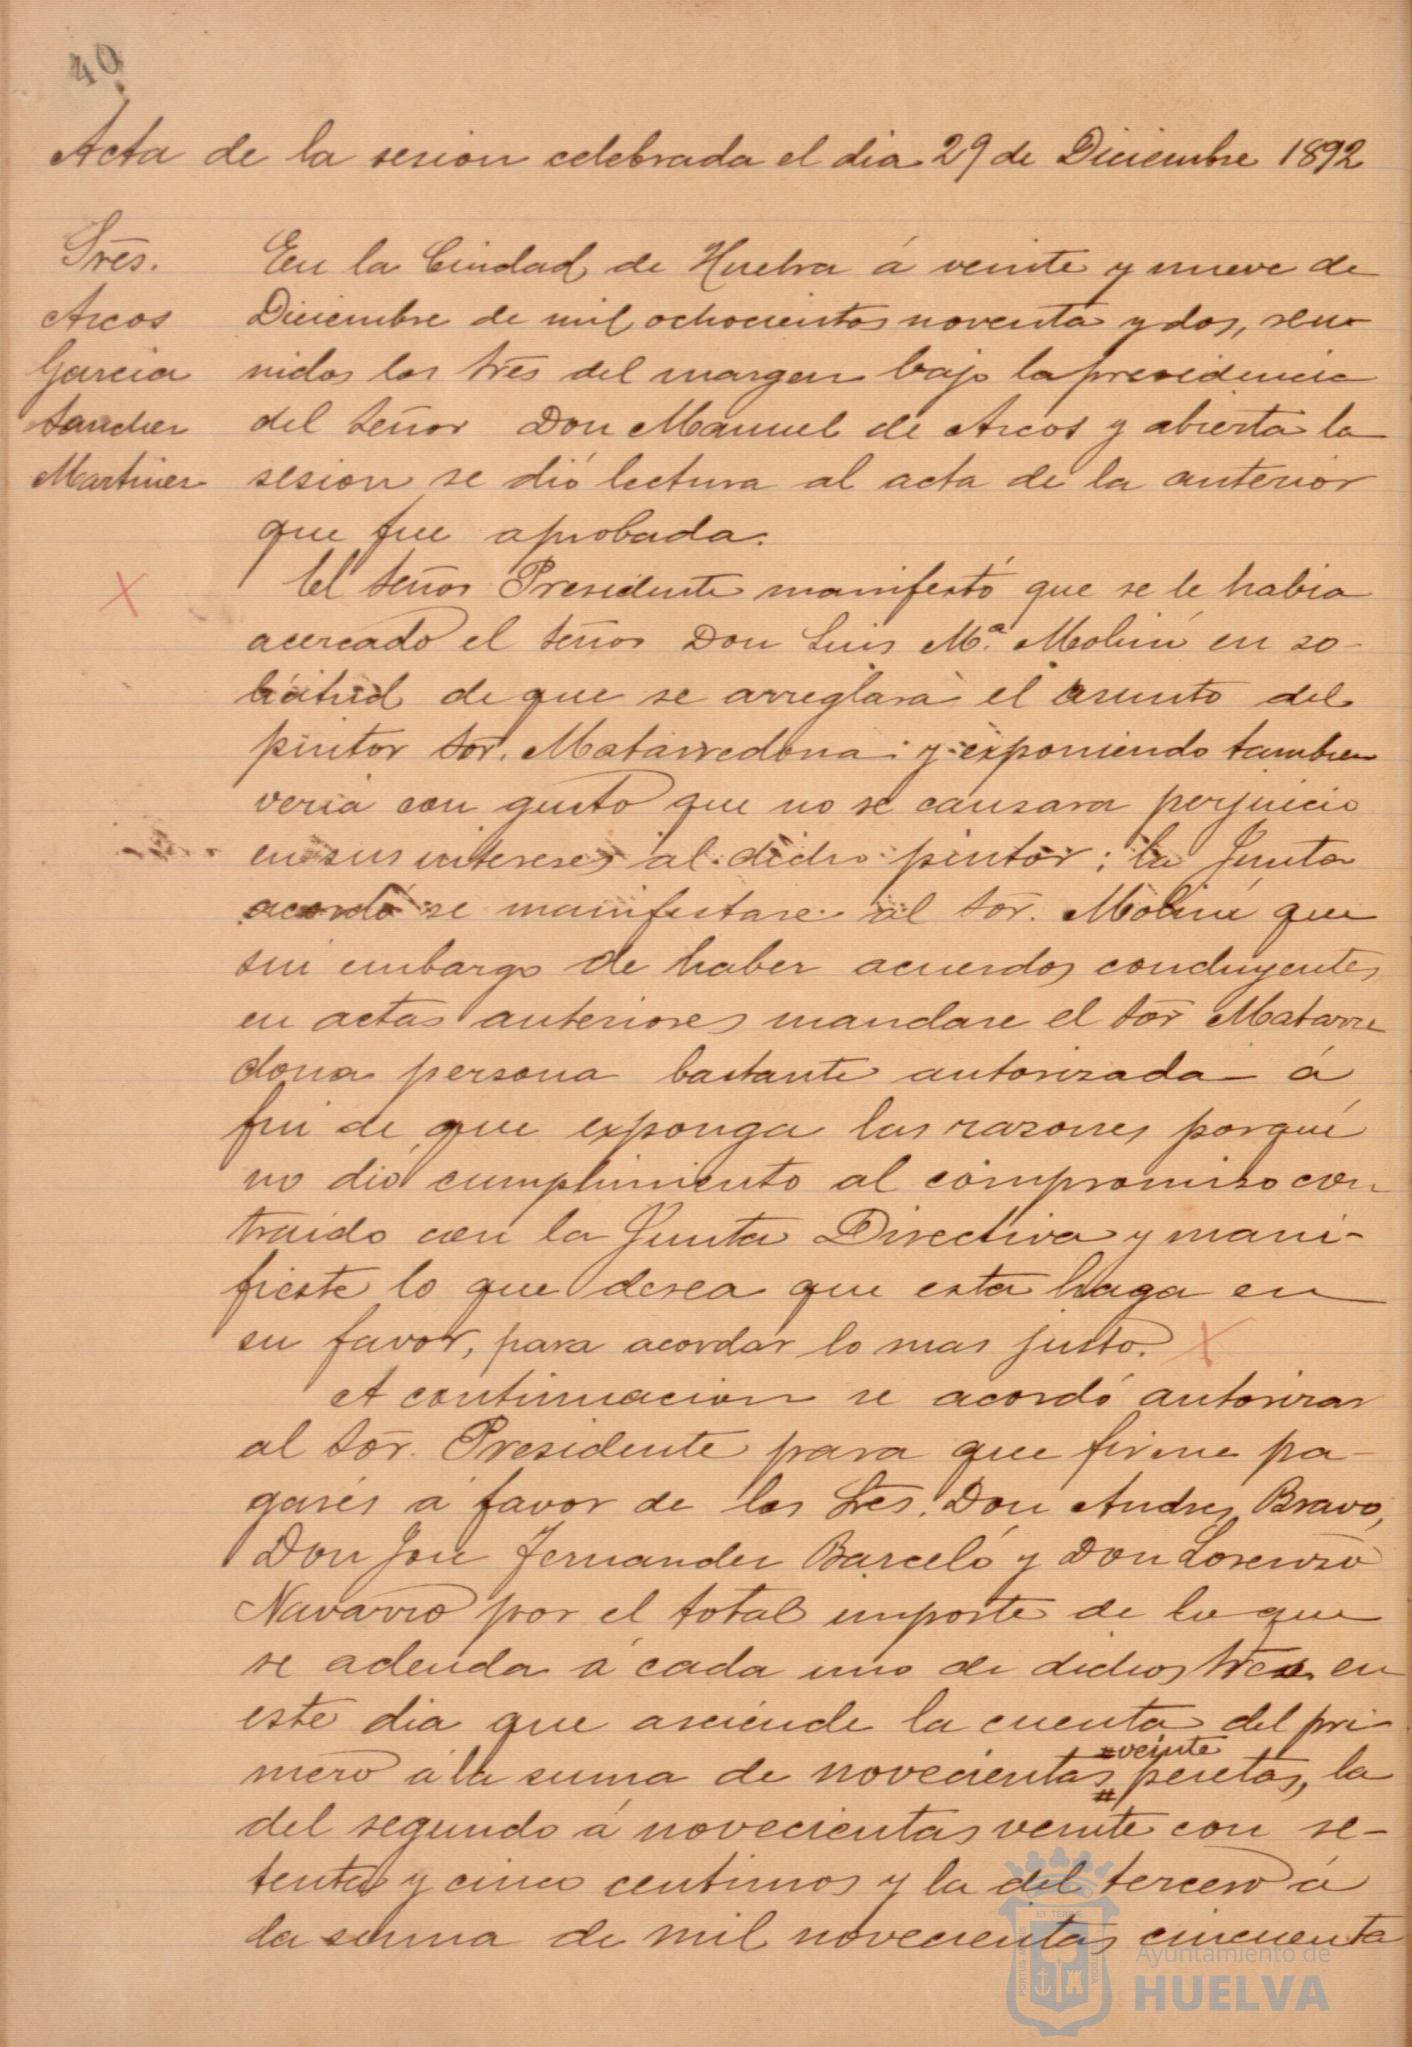 40
Acta de la sesion celebrada el dia 29 de Diciembre 1892
Sres.
Arcos
Garcia
Sanchez
Martinez
En la Ciudad de Huelva á veinte y nueve de
Diciembre de mil ochocientos noventa y dos, reu-
nidos los Sres del margen bajo la presidencia
del Señor Don Manuel de Arcos y abierta la
sesion se dió lectura al acta de la anterior
que fue aprobada.
El Señor Presidente manifestó que se le habia
acercado el Señor Don Luis Mª. Molini en so-
licitud de que se arreglara el asunto del
pintor Sor. Matarredona y exponiendo tambien
veria con gusto que no se causara perjuicio
en sus intereses al dicho pintor; la Junta
acordó se manifestare al Sor. Molini que
sin embargo de haber acuerdos concluyentes
en actas anteriores mandare el Sor Matarre
dona persona bastante autorizada á
fin de que exponga las razones porqué
no dió cumplimiento al compromiso con
traido con la Junta Directiva y mani-
fieste lo que desea que esta haga en
su favor, para acordar lo mas justo.
A continuacion se acordó autorizar
al Sor. Presidente para que firme pa-
garés á favor de los Sres. Don Andres Bravo,
Don José Fernandez Barceló y Don Lorenzo
Navarro por el total importe de lo que
se adeuda á cada uno de dichos Sres en
este dia que asciende la cuenta del pri-
mero á la suma de novecientas # veinte # pesetas, la
del segundo á novecientas veinte con se-
tenta y cinco centimos y la del tercero á
la suma de mil novecientas cincuenta
Ayuntamiento de
HUELVA